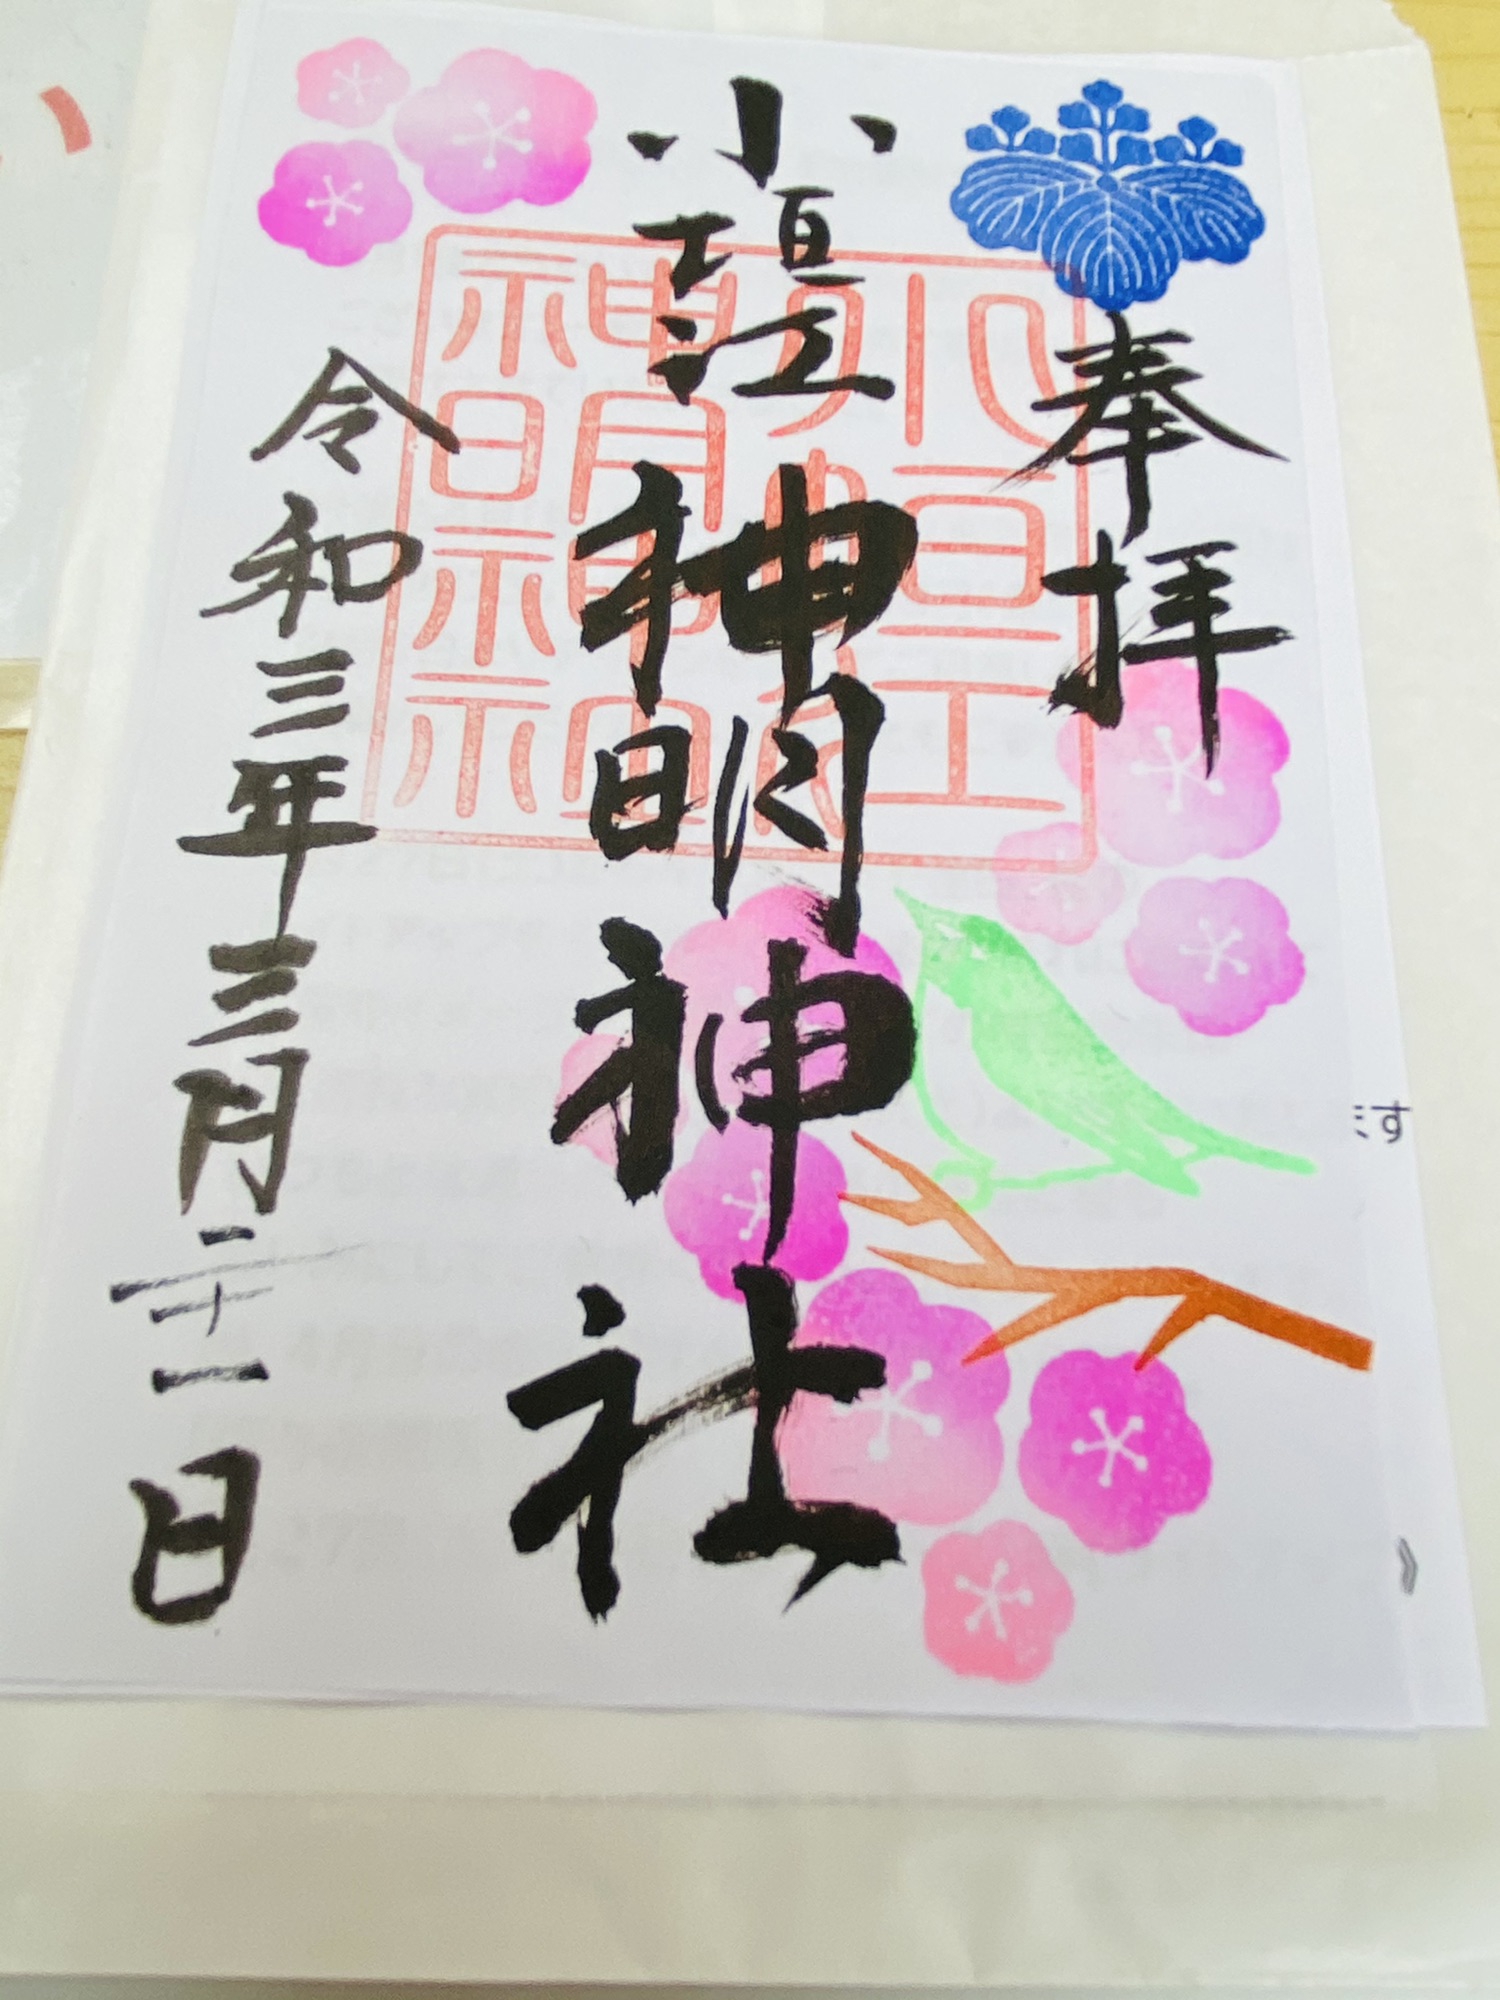 奉拝
小垣江神明神社
令和三年三月二十一日
小垣江
神明神社
す
》